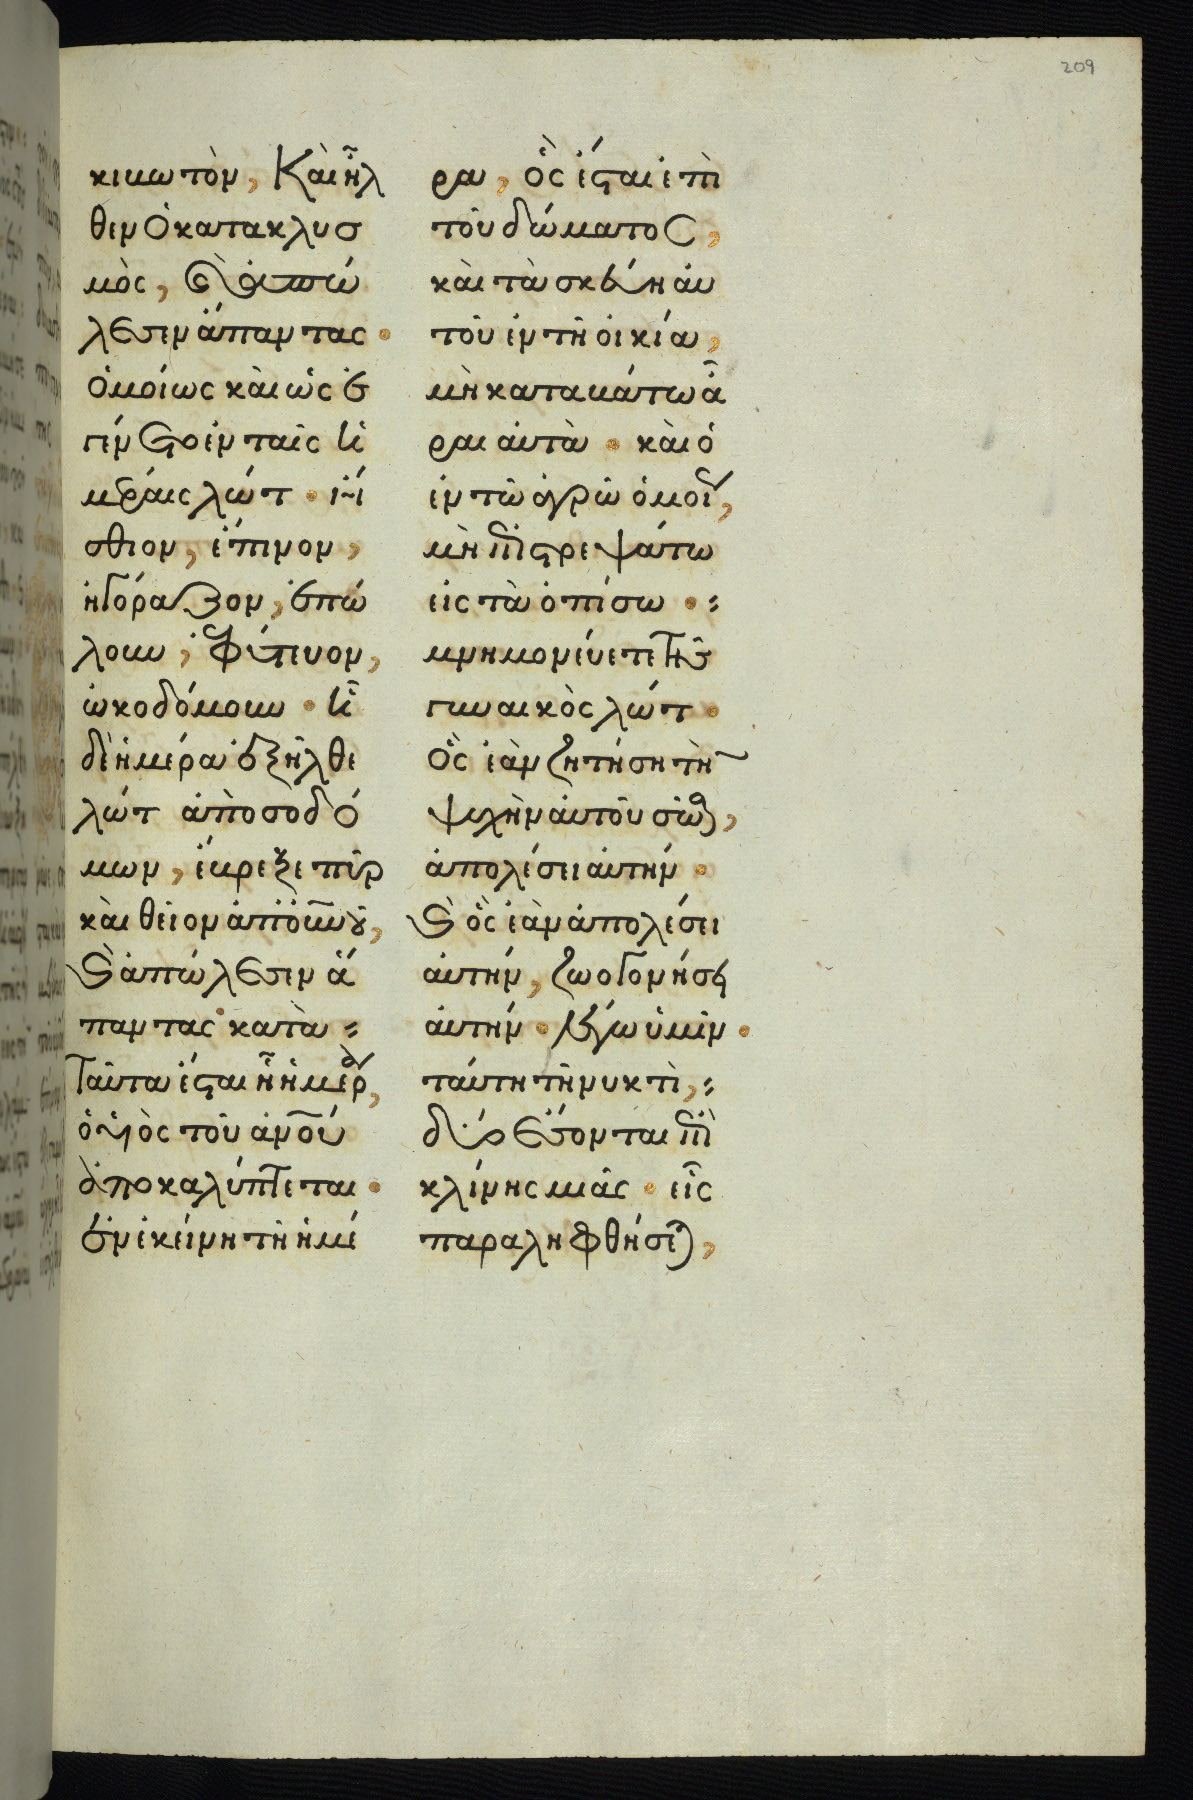 209
κιβωτὸν, Καὶ ἦλ
θεν ὁ κατακλυσ
μὸς, καὶ ἀπώ
λεσεν ἅπαντας ·
ὁμοίως καὶ ὡς ἐ
γένετο ἐν ταῖς ἡ
μέραις λώτ · ἤ
σθιον, ἔπινον,
ἠγόραζον, ἐπώ
λουν, ἐφύτευον,
ὠκοδόμουν · ἧ
δὲ ἡμέρα ἐξῆλθε
λώτ ἀπὸ σοδό
μων, ἔβρεξε πῦρ
καὶ θεῖον ἀπὸ οὐνοῦ,
καὶ ἀπώλεσεν ἅ
παντας· κατὰ
ταῦτα ἔσται ἧ ἡμέρα,
ὁ υἱὸς τοῦ ἀνου
ἀποκαλύπτεται ·
ἐν ἐκείνη τῆ ἡμέ
ρα, ὃς ἔσται ἐπὶ
τοῦ δώματος,
καὶ τὰ σκεύη αὐ
τοῦ ἐν τῆ οἰκία,
μὴ καταβάτω ἆ
ραι αὐτὰ · καὶ ὁ
ἐν τῶ ἀγρῶ ὁμοί,
μὴ ἐπιστρεψάτω
εἰς τὰ ὀπίσω ·
μνημονεύετε τῆς
γυναικὸς λώτ ·
ὃς ἐὰν ζητήση τὴν
ψυχὴν αὐτοῦ σῶσαι,
ἀπολέσει αὐτήν ·
καὶ ὃς ἐὰν ἀπολέσει
αὐτήν, ζωογονήσει
αὐτήν · λέγω ὑμῖν ·
ταύτη τῆ νυκτὶ,
δύο ἔσονται ἐπὶ
κλίνης μιᾶς · εἷς
παραληφθήσεται,